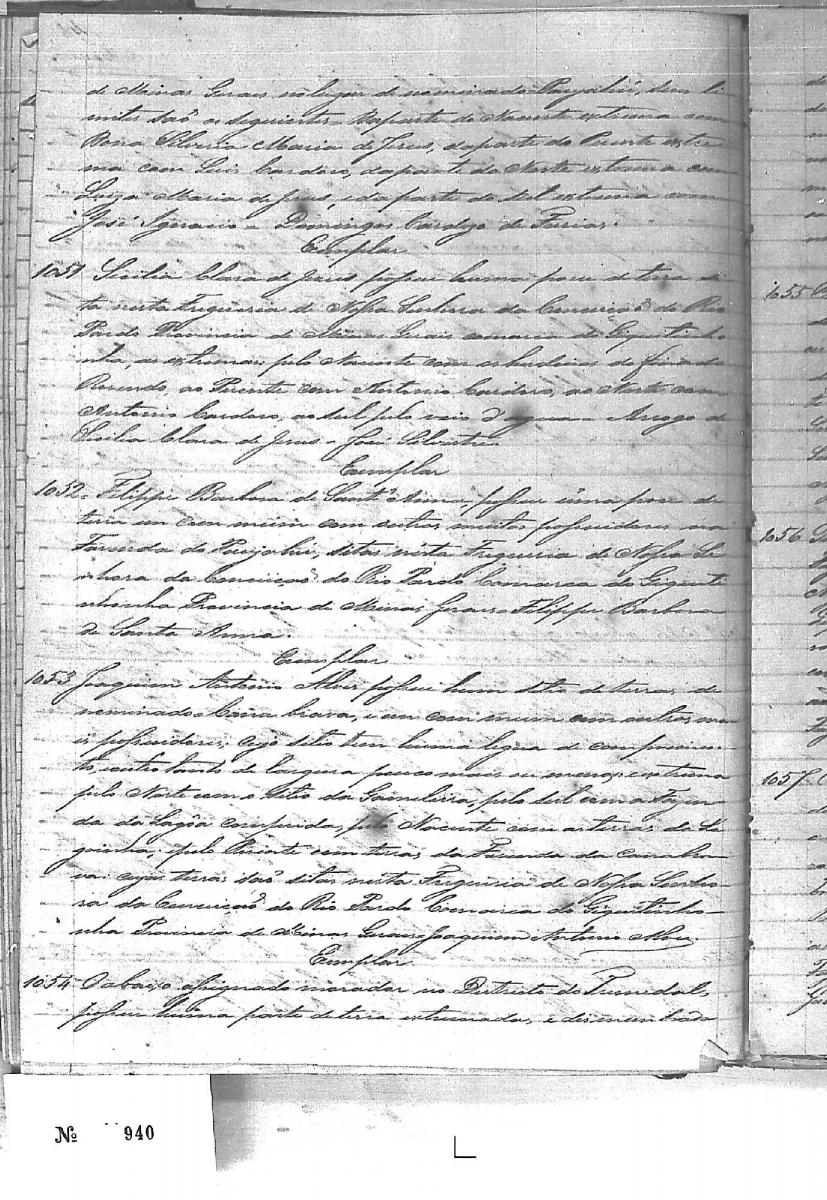 de Minas Gerais no lugar de nominado Pajahú, seus li
mites saõ os seguintes Daparte do Nascente extrema com
Dona Silveria Maria de Jesus, daparte do Puente extre
ma com Luis Cardoso, daparte do Norte extrema com
Luiza Maria de Jesus, e daparte do Sul extrema com
José Ignacio e Domingos Cardozo de Farias.
Exemplar
1051 Sicilia Clara de Jesus possue huma posse de terra si
ta nesta Freguesia de Nossa Senhora da Conceiçaõ do Rio
Pardo Provincia de Minas Gerais comarca do Gigitinho
nha, do extremar pelo Nascente com os herdeiros do finado
Rosendo, ao Puente com Antonio Cardoso, ao Norte com
Antonio Cardoso, ao Sul pelo veio d'agua Arogo de
Sicilia Clara de Jesus José Silvestre
Exemplar
1052 Filippe Barbora de Santª Anna, possue uma posse de
terra em cum mum com outros muitos possuidores na
Fazenda do Pajahú, sitas nesta Freguesia de Nossa Se
nhora da Conceiçaõ do Rio Pardo Comarca do Giquiti
nhonha Provincia de Minas Gerais Filippe Barbora
de Santa Anna
Exemplar
1053 Joaquim Antonio Alves possue hum sitio de terras, de
nominado Cana brava, e em com mum com outros ma
is possuidores, cujo sitio tem huma legua de comprimen
to, outro tanto de largura pouco mais ou menos, extrema
pelo Norte com o Sitio da Gamelleira, pelo Sul com a Fazen
da da Lagôa comprida, pelo Nascente com as terras da La
goinha, pelo Puente com terras da Fazenda da cana bra
va. cujas terras saõ sitas nesta Freguesia de Nossa Senho
ra da Conceiçaõ do Rio Pardo Comarca do Giquitinho
nha Provincia de Minas Gerais Joaquim Antonio Alves
Exemplar
1054 O abaixo assignado morador no Districto do
possue huma parte de terra extremada, e desmembrada
1055
1056
1057
Nº 940